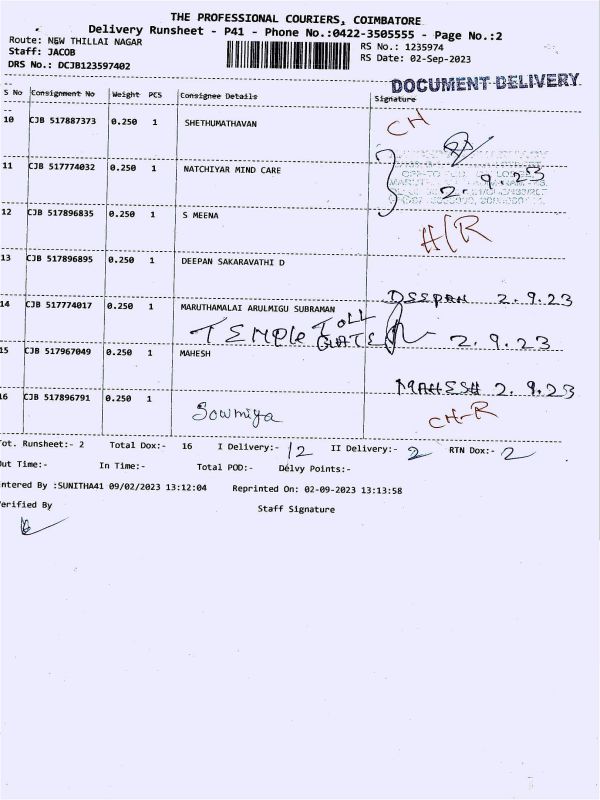 THE PROFESSIONAL COURIERS, COIMBATORE
Delivery Runsheet - P41 - Phone No.:0422-3505555 - Page No.:2
Route: NEW THILLAI NAGAR
RS No.: 1235974
Staff: JACOB
RS Date: 02-Sep-2023
DRS No.: DCJB123597402
DOCUMENT DELIVERY
S No Consignment No Weight PCS Consignee Details Signature
10 CJB 517887373 0.250 1 SHETHUMATHAVAN CH
11 CJB 517774032 0.250 1 NATCHIYAR MIND CARE 2.9.23
12 CJB 517896835 0.250 1 S MEENA H/R
13 CJB 517896895 0.250 1 DEEPAN SAKARAVATHI D
DEEPAN 2.9.23
14 CJB 517774017 0.250 1 MARUTHAMALAI ARULMIGU SUBRAMAN
TEMPLE TOLL GATE 2.9.23
15 CJB 517967049 0.250 1 MAHESH
MAHESH 2.9.23
16 CJB 517896791 0.250 1 Sowmiya CH-R
Tot. Runsheet:- 2 Total Dox:- 16 I Delivery:- 12 II Delivery:- 2 RTN Dox:- 2
Out Time:- In Time:- Total POD:- Delvy Points:-
Entered By :SUNITHA41 09/02/2023 13:12:04 Reprinted On: 02-09-2023 13:13:58
Verified By Staff Signature